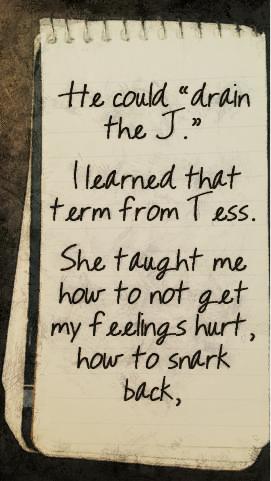 He could "drain
the J."
I learned that
term from Tess.
She taught me
how to not get
my feelings hurt,
how to snark
back,